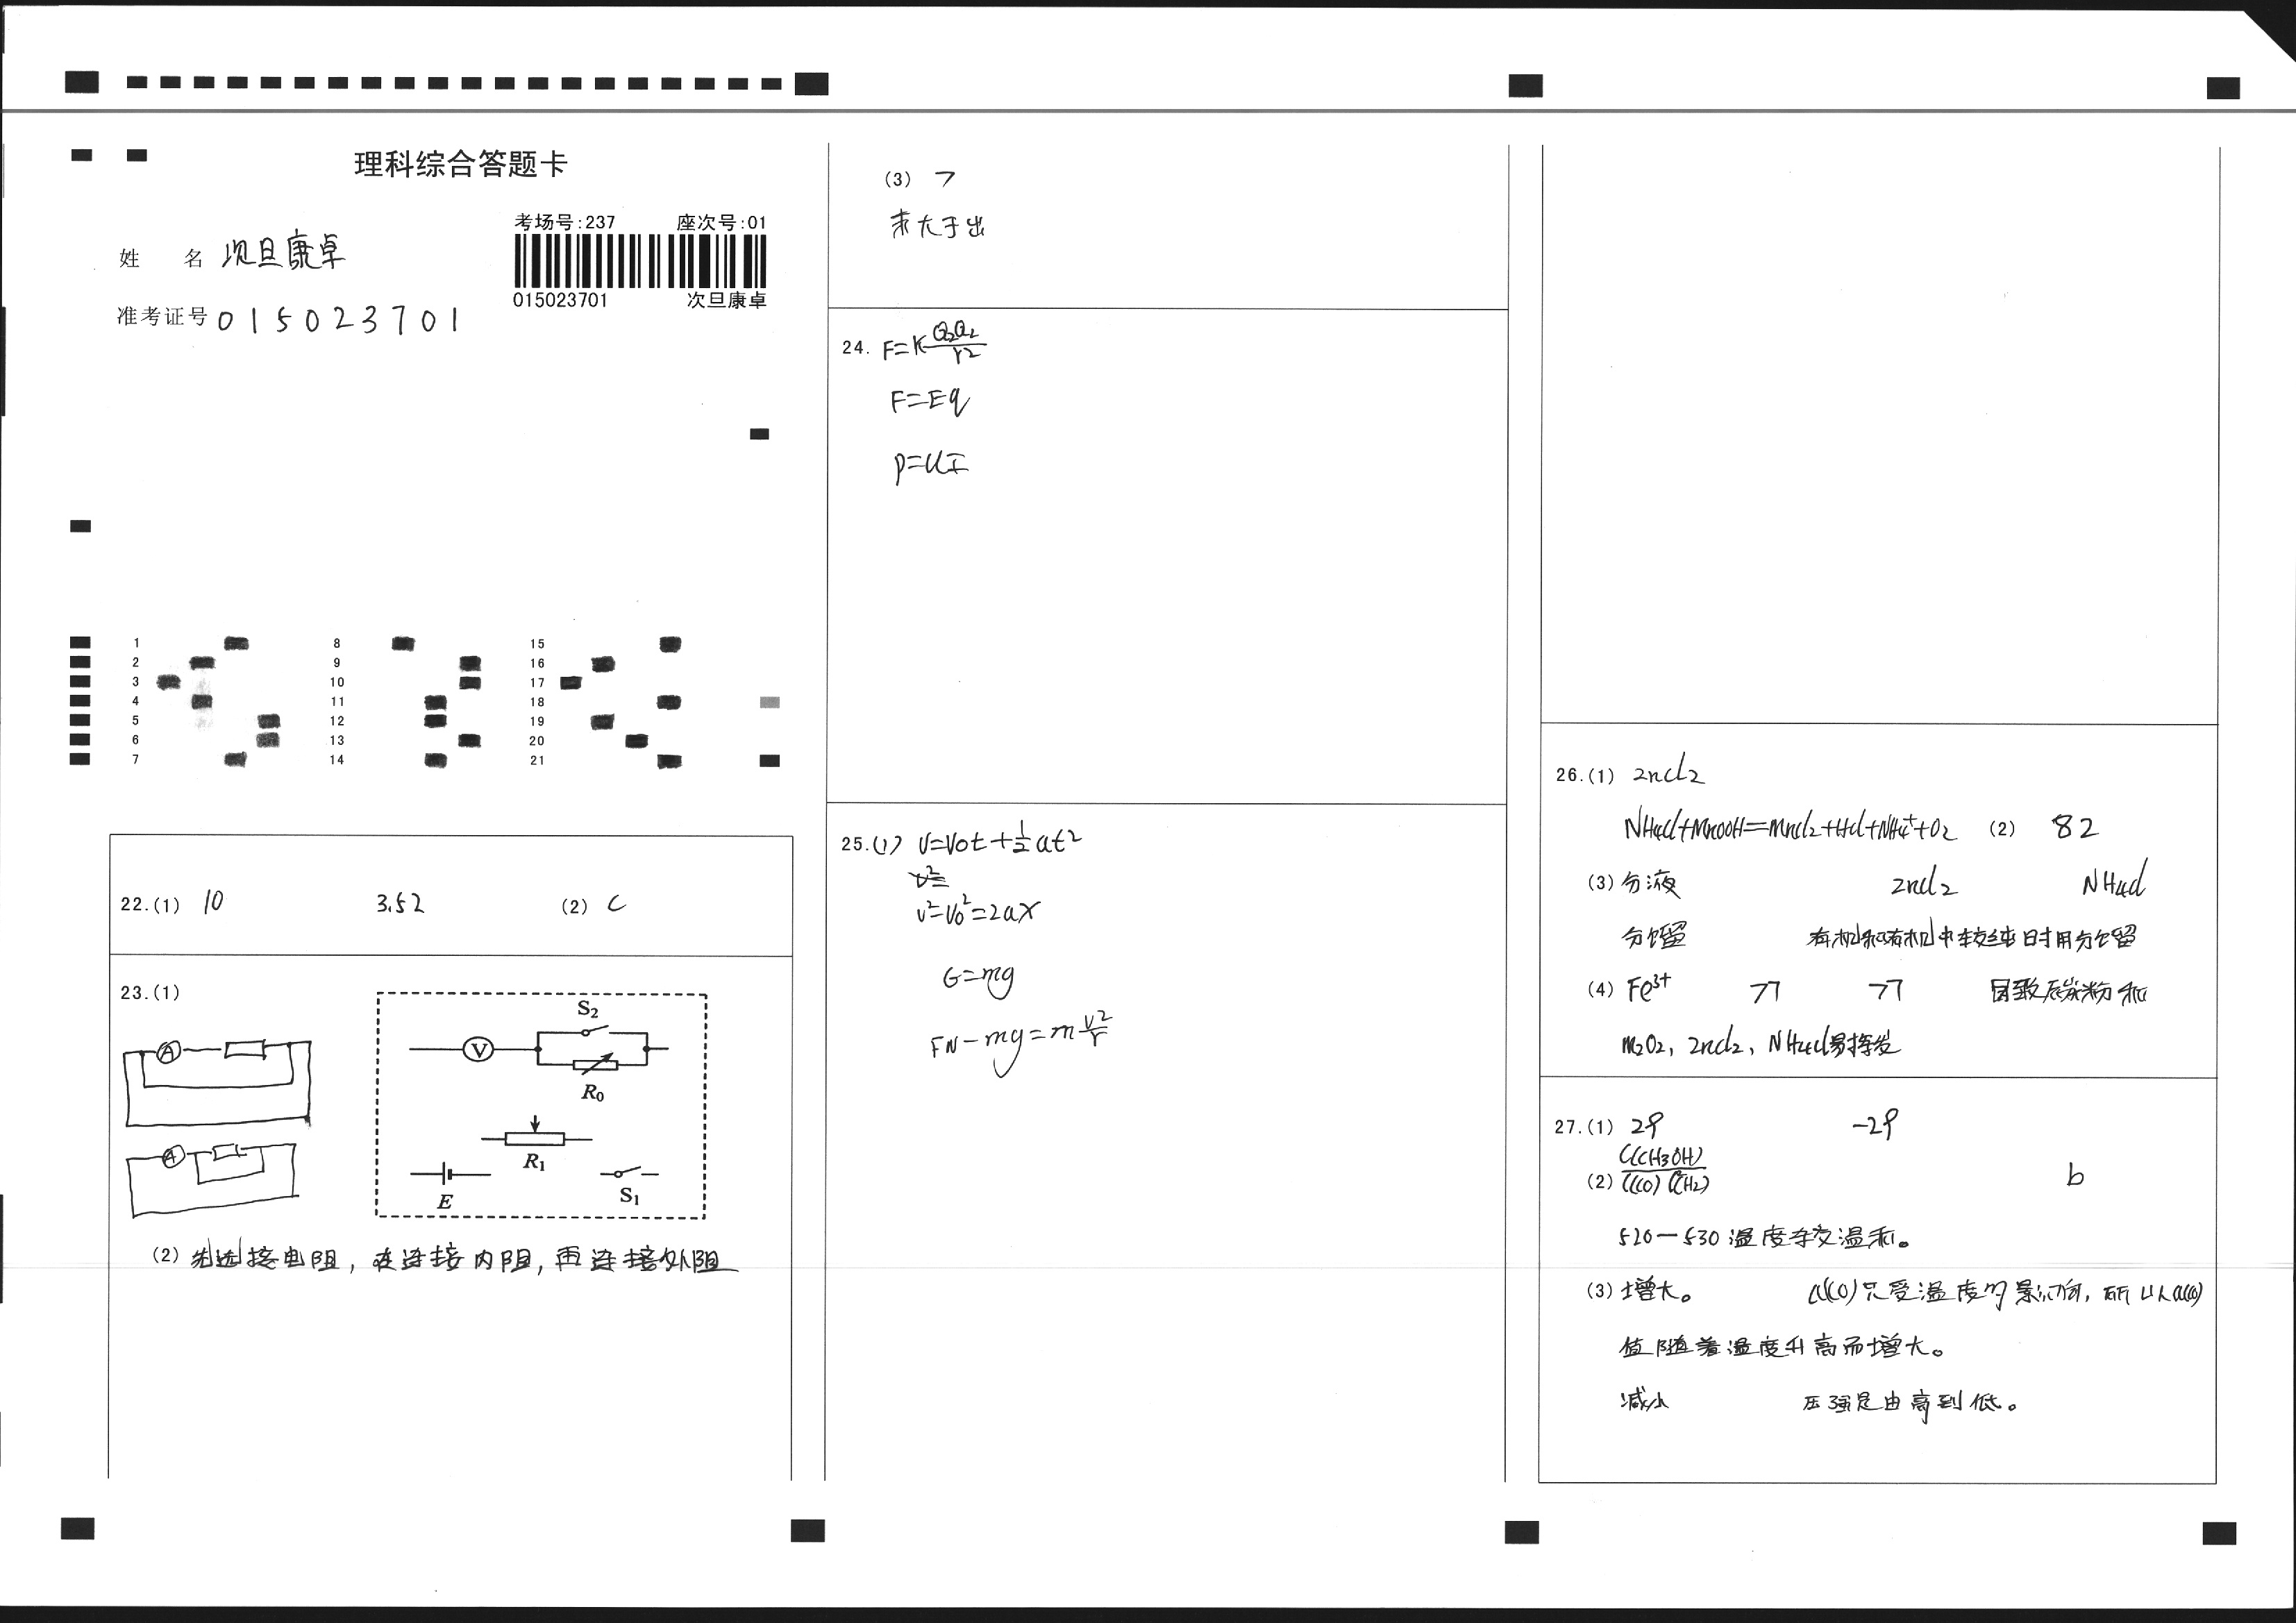 理科综合答题卡
考场号:237 座次号:01
姓 名 次旦康卓
015023701 次旦康卓
准考证号 015023701
1 8 15
2 9 16
3 10 17
4 11 18
5 12 19
6 13 20
7 14 21
22.(1) 10 3.52 (2) C
23.(1)
A
A
S₂
V
R₀
R₁
E
S₁
(2) 先连接电阻，在连接内阻，再连接外阻
(3) >
末大于出
24. F=K Q₂Q₂/r²
F=Eq
P=UI
25.(1) V=V0t+½at²
v²=
v²-V₀²=2ax
G=mg
FN-mg=m v²/r
26.(1) 2ncl₂
NH₄cl+MnOOH=Mncl₂+Hcl+NH₄⁺+O₂ (2) 82
(3) 分液 2ncl₂ NH₄cl
分馏 有机和有机中较纯时用分馏
(4) Fe³⁺ 77 77 因致 碳粉和
M₂O₂，2ncl₂、NH₄cl易挥发
27.(1) 29 -29
(2) C(CH₃OH)/C(CO) C(H₂) b
520-530温度 温和。
(3) 增大。 α(CO)只受温度的影响，所以α(CO)
值随着温度升高而增大。
减小 压强是由高到低。